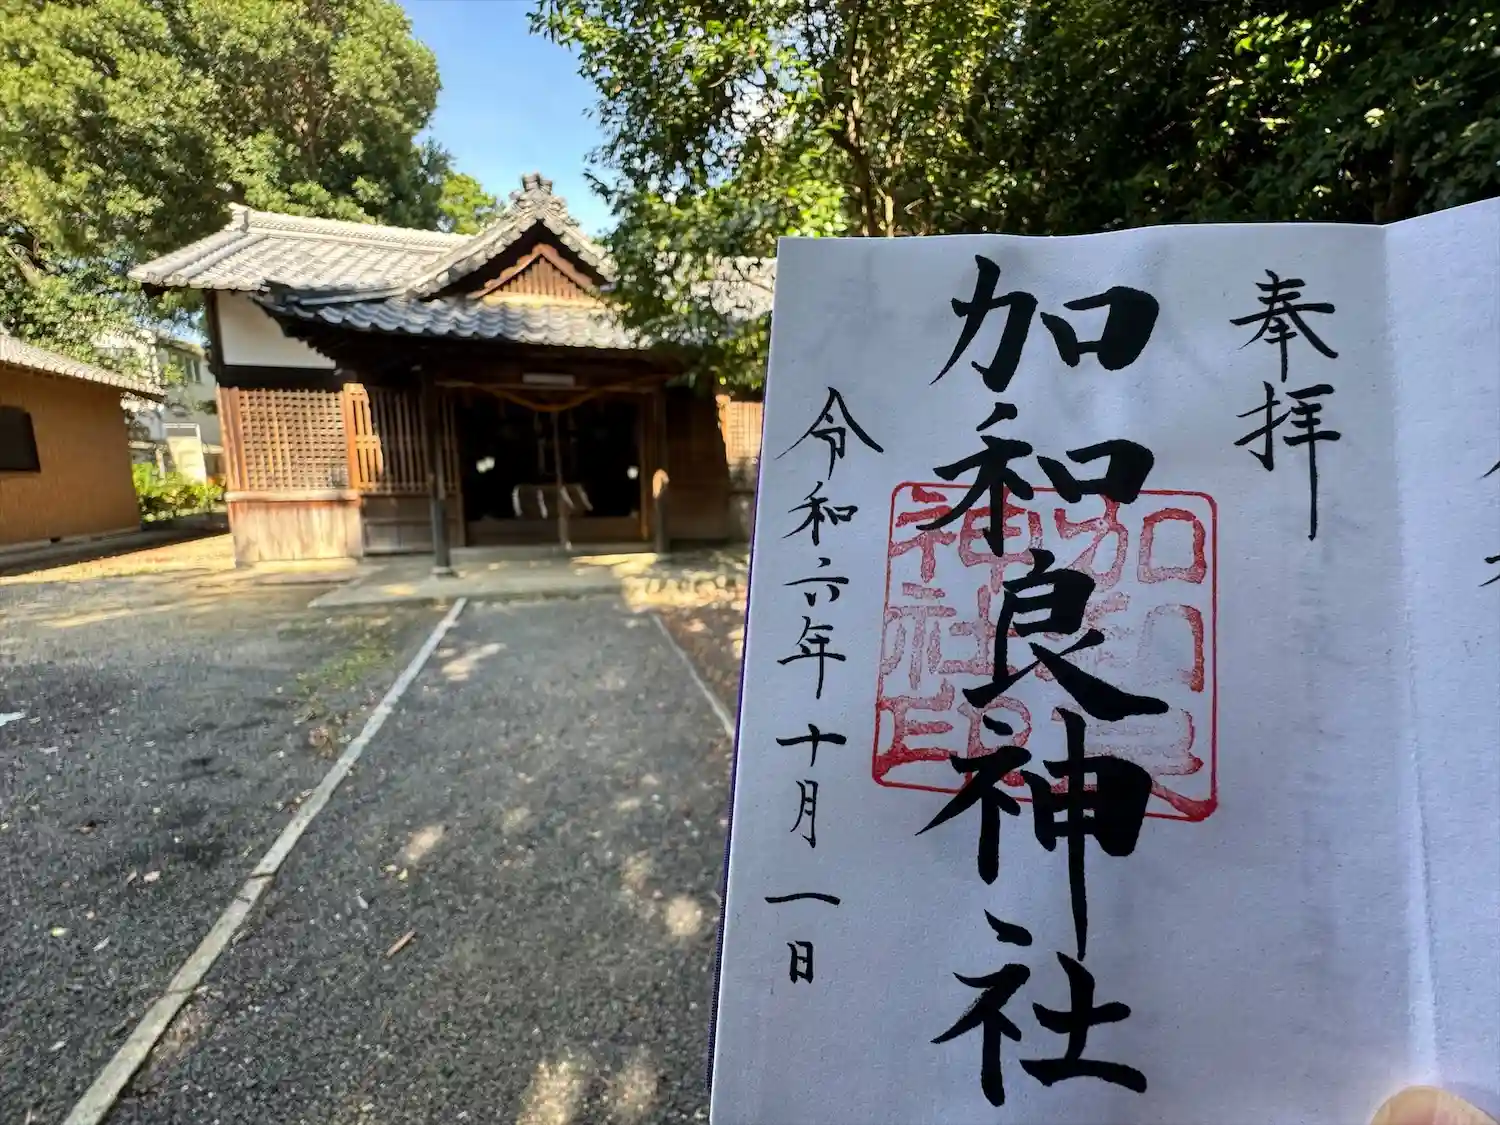 奉拝
加和良神社
加和良
神社印
令和六年十月一日